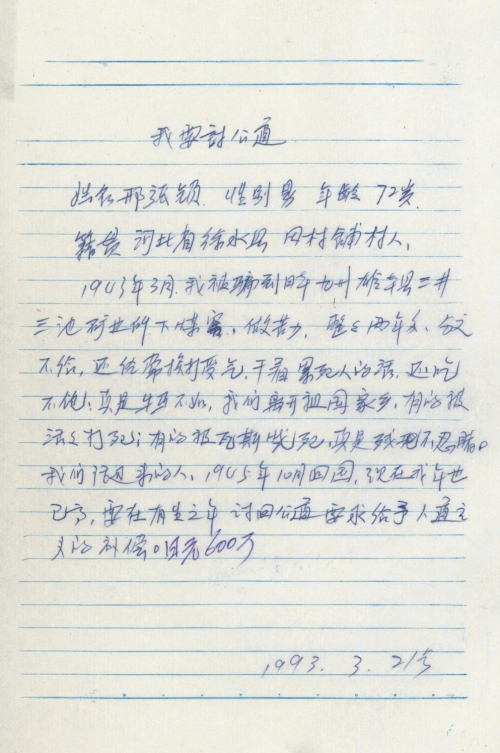 我要讨公道
姓名邢 颖. 性别男 年龄 72岁.
籍贯 河北省徐水县 田村铺村人,
1943年3月.我被骗到日本九州 本县三井
三池矿业所下煤窑、做苦力, 整整两年多、分文
不给, 还经常挨打受气, 干着累死人的活. 还吃
不饱,真是牛马不如, 我们离开祖国家乡, 有的被
活活打死; 有的被瓦斯 死,真是残 不忍睹。
我们 的人、1945年10月回国, 现在我年也
已高, 要在有生之年 讨回公道 要求给予人道主
义的补偿。日元600万
1993. 3. 21号